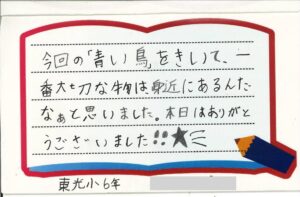 今回の「青い鳥」をきいて、一
番大切な物は身近にあるんだ
なぁと思いました。本日はありがと
うございました!!★
東光小6年